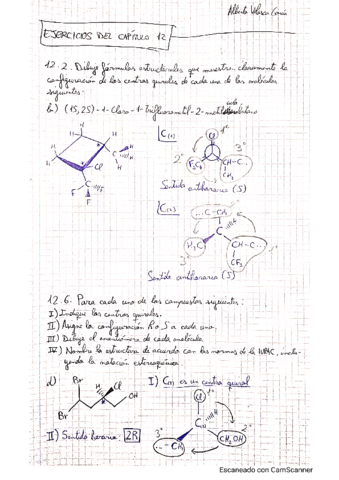 Alberto Velasco
EJERCICIOS DEL CAPÍTULO 12
12.2. Dibuje fórmulas estructurales que muestren claramente la
configuración de los centros quirales de cada una de las moléculas
siguientes:
b) (1S,2S)-1-Cloro-1-trifluorometil-2-metilciclobutano
H
H
H
H
H
Cl
C
F
F
F
C(1)
Cl
1º
2º
3º
F3C
CH-C...
CH3
Sentido antihorario (S)
C(2)
1º
...C-CH2
H
C
H3C
3º
CH-C...
CF3
2º
Sentido antihorario (S)
12.6. Para cada uno de los compuestos siguientes:
I) Indique los centros quirales.
II) Asigne la configuración R o S a cada uno.
III) Dibuje el enantiómero de cada molécula.
IV) Nombre la estructura de acuerdo con las normas de la IUPAC, inclu-
yendo la notación estereoquímica.
d)
Br
Br
H
Cl
OH
I) C(2) es un centro quiral
Cl
1º
H
C(2)
3º
...-CH2
CH2OH
2º
II) Sentido horario: 2R
Escaneado con CamScanner